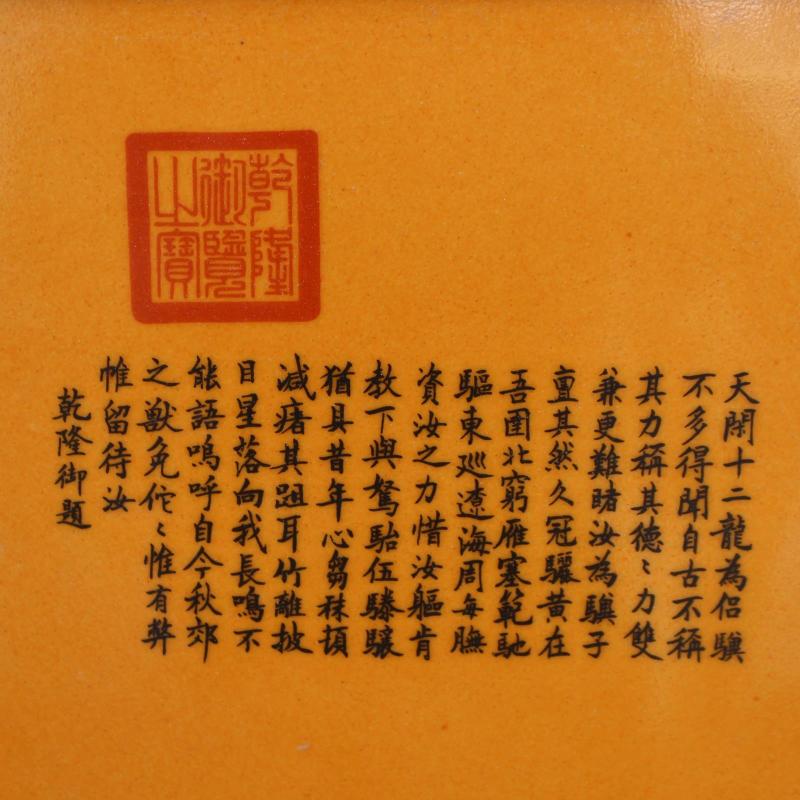 乾隆
御覽
之寶
天閑十二龍為侶驥
不多得聞自古不稱
其力稱其德〻力雙
兼更難睹汝為驥子
亶其然久冠驪黃在
吾圉北窮雁塞範馳
驅東巡遼海周每膴
資汝之力惜汝軀肯
教下與駑駘伍騰驤
猶具昔年心芻秣頓
減瘏其跙耳竹離披
目星落向我長鳴不
能語嗚呼自今秋郊
之獸免佗〻惟有弊
帷留待汝
乾隆御題